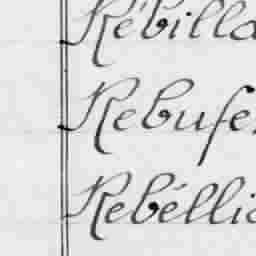 Rébilla
Rebufe
Rebélli